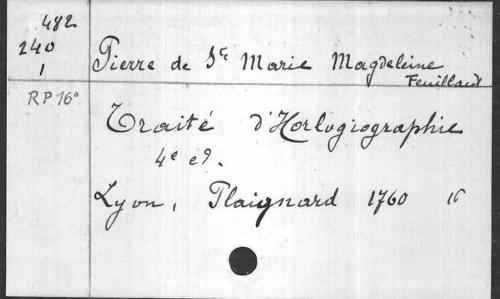 482
240
1
Pierre de Ste Marie Magdeleine
Feuillant
RP 16°
Traité d'Horlogiographie
4e ed.
Lyon, Plaignard 1760 16